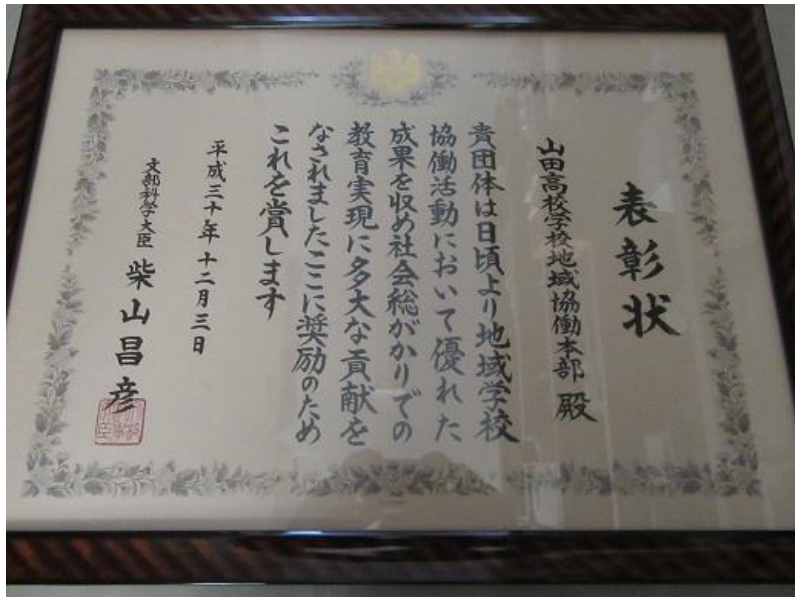 表彰状
山田高校学校地域協働本部 殿
貴団体は日頃より地域学校
協働活動において優れた
成果を収め社会総がかりでの
教育実現に多大な貢献を
なされましたここに奨励のため
これを賞します
平成三十年十二月三日
文部科学大臣 柴山昌彦